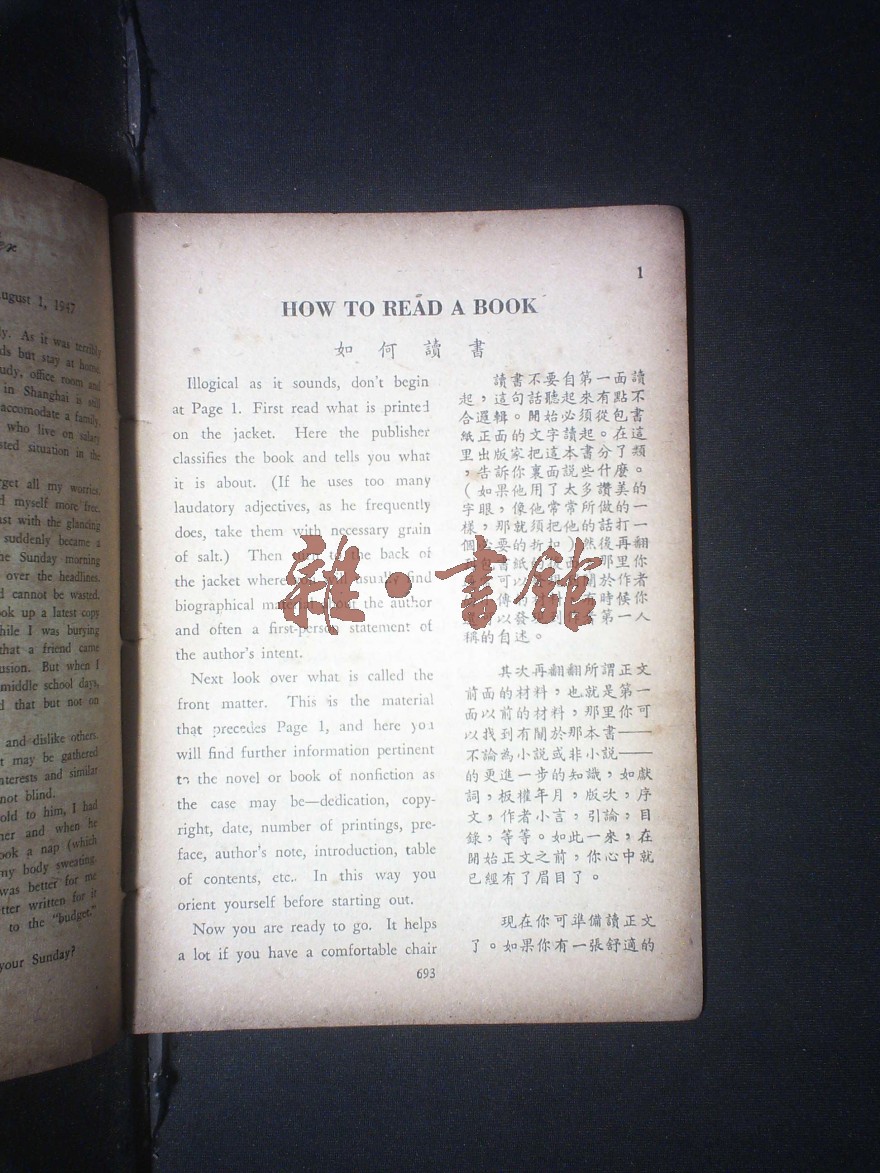 ugust 1, 1947
ly. As it was terribly
ds but stay at home.
udy, office room and
in Shanghai is still
accomodate a family,
who live on salary
sted situation in the
rget all my worries.
d myself more free.
ust with the glancing
suddenly became a
he Sunday morning
over the headlines.
d cannot be wasted.
ook up a latest copy
while I was burying
that a friend came
usion. But when I
middle school days,
d that but not on
and dislike others.
t may be gathered
nterests and similar
not blind.
old to him, I had
her and when he
ook a nap (which
my body sweating.
was better for me
tter written for it
to the "budget."
your Sunday?
1
HOW TO READ A BOOK
如何讀書
Illogical as it sounds, don't begin
at Page 1. First read what is printed
on the jacket. Here the publisher
classifies the book and tells you what
it is about. (If he uses too many
laudatory adjectives, as he frequently
does, take them with necessary grain
of salt.) Then to the back of
the jacket where usually find
biographical about the author
and often a first-person statement of
the author's intent.
Next look over what is called the
front matter. This is the material
that precedes Page 1, and here you
will find further information pertinent
to the novel or book of nonfiction as
the case may be—dedication, copy-
right, date, number of printings, pre-
face, author's note, introduction, table
of contents, etc.. In this way you
orient yourself before starting out.
Now you are ready to go. It helps
a lot if you have a comfortable chair
讀書不要自第一面讀
起，這句話聽起來有點不
合邏輯。開始必須從包書
紙正面的文字讀起。在這
里出版家把這本書分了類
，告訴你裏面說些什麼。
（如果他用了太多讚美的
字眼，像他常常所做的一
樣，那就須把他的話打一
個必要的折扣）然後再翻
書紙的後面，那里你
可以關於作者
傳時候你
以發第一人
稱的自述。
其次再翻翻所謂正文
前面的材料，也就是第一
面以前的材料，那里你可
以找到有關於那本書——
不論為小說或非小說——
的更進一步的知識，如獻
詞，板權年月，版次，序
文，作者小言，引論，目
錄，等等。如此一來，在
開始正文之前，你心中就
已經有了眉目了。
現在你可準備讀正文
了。如果你有一張舒適的
693
雜·書館